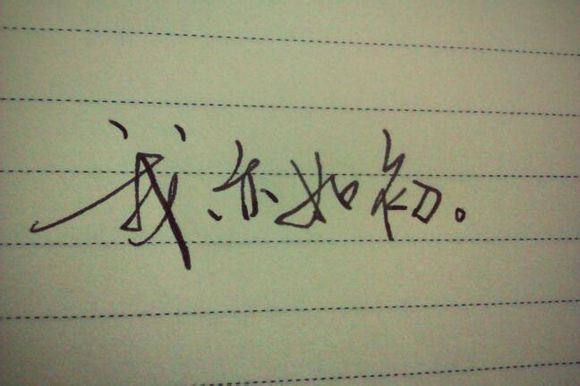 我亦如初。